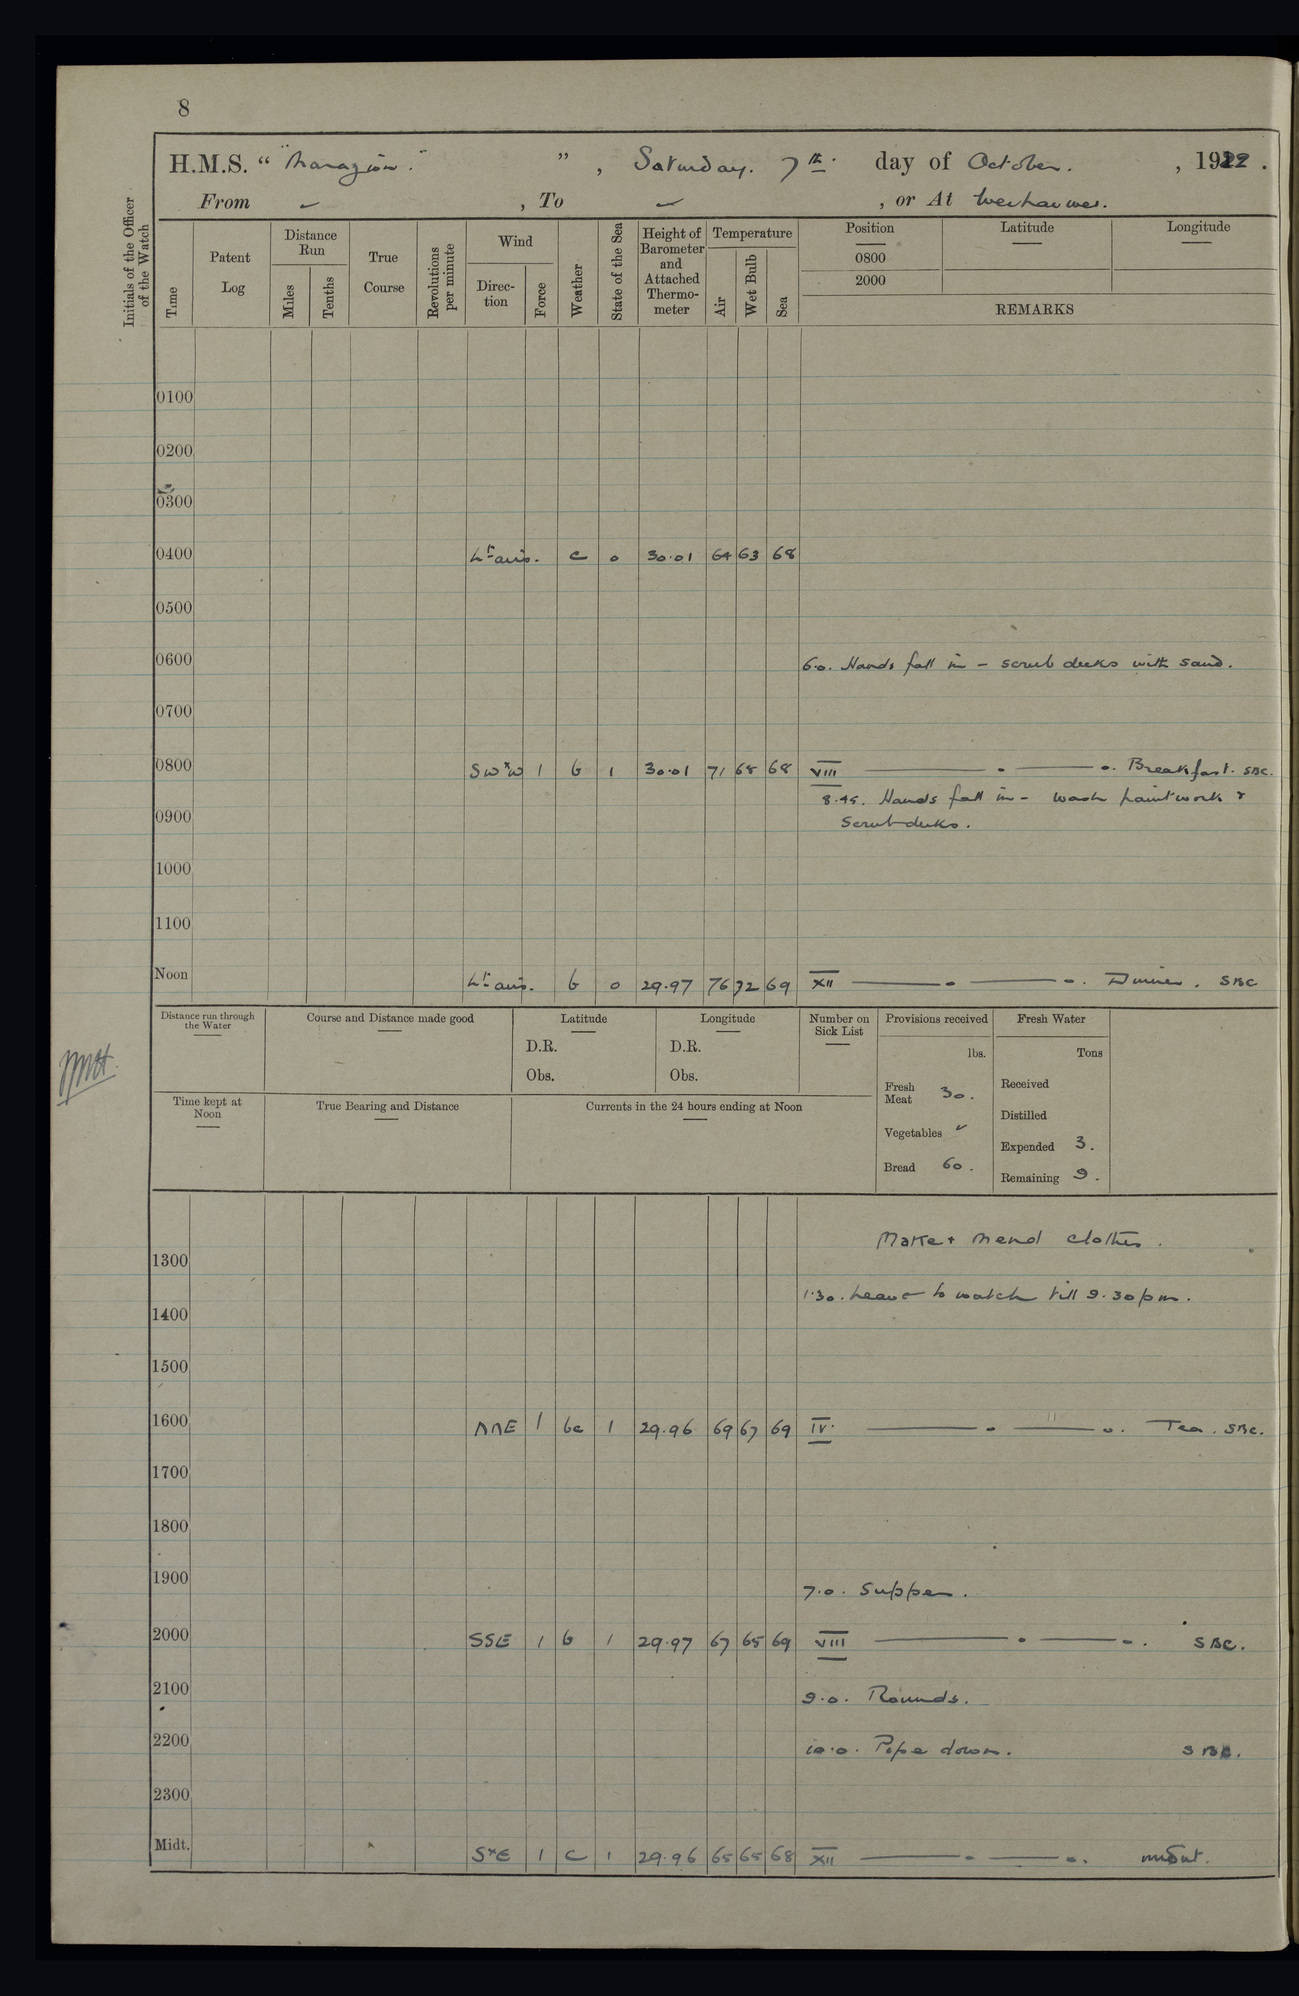 8
H.M.S. “ "Marazion." ” , Saturday. 7th. day of October. , 1922 .
From ✓ , To ✓ , or At Weihaiwei.
Initials of the Officer of the Watch
Time
Patent Log
Distance Run
Miles
Tenths
True Course
Revolutions per minute
Wind
Direction
Force
Weather
State of the Sea
Height of Barometer and Attached Thermometer
Temperature
Air
Wet Bulb
Sea
Position
0800
2000
Latitude
Longitude
REMARKS
0100
0200
0300
0400 Lt airs. c 0 30.01 64 63 68
0500
0600 6.0. Hands fall in – scrub decks with sand.
0700
0800 SWxW 1 b 1 30.01 71 68 68 VIII Breakfast. SBC.
8.45. Hands fall in – wash paintwork &
0900 Scrub decks.
1000
1100
Noon Lt airs. b 0 29.97 76 72 69 XII Dinner. SBC
Distance run through the Water
Course and Distance made good
Latitude
D.R.
Obs.
Longitude
D.R.
Obs.
Number on Sick List
Provisions received
lbs.
Fresh Meat 30.
Vegetables ✓
Bread 60.
Fresh Water
Tons
Received
Distilled
Expended 3.
Remaining 9.
Time kept at Noon
True Bearing and Distance
Currents in the 24 hours ending at Noon
Make & Mend clothes.
1300
1.30. Leave to watch till 9.30pm.
1400
1500
1600 NNE 1 bc 1 29.96 69 67 69 IV. Tea. SBC.
1700
1800
1900 7.0. Supper.
2000 SSE 1 b 1 29.97 67 65 69 VIII SBC.
2100 9.0. Rounds.
2200 10.0. Pipe down. SBC.
2300
Midt. SxE 1 c 1 29.96 65 65 68 XII